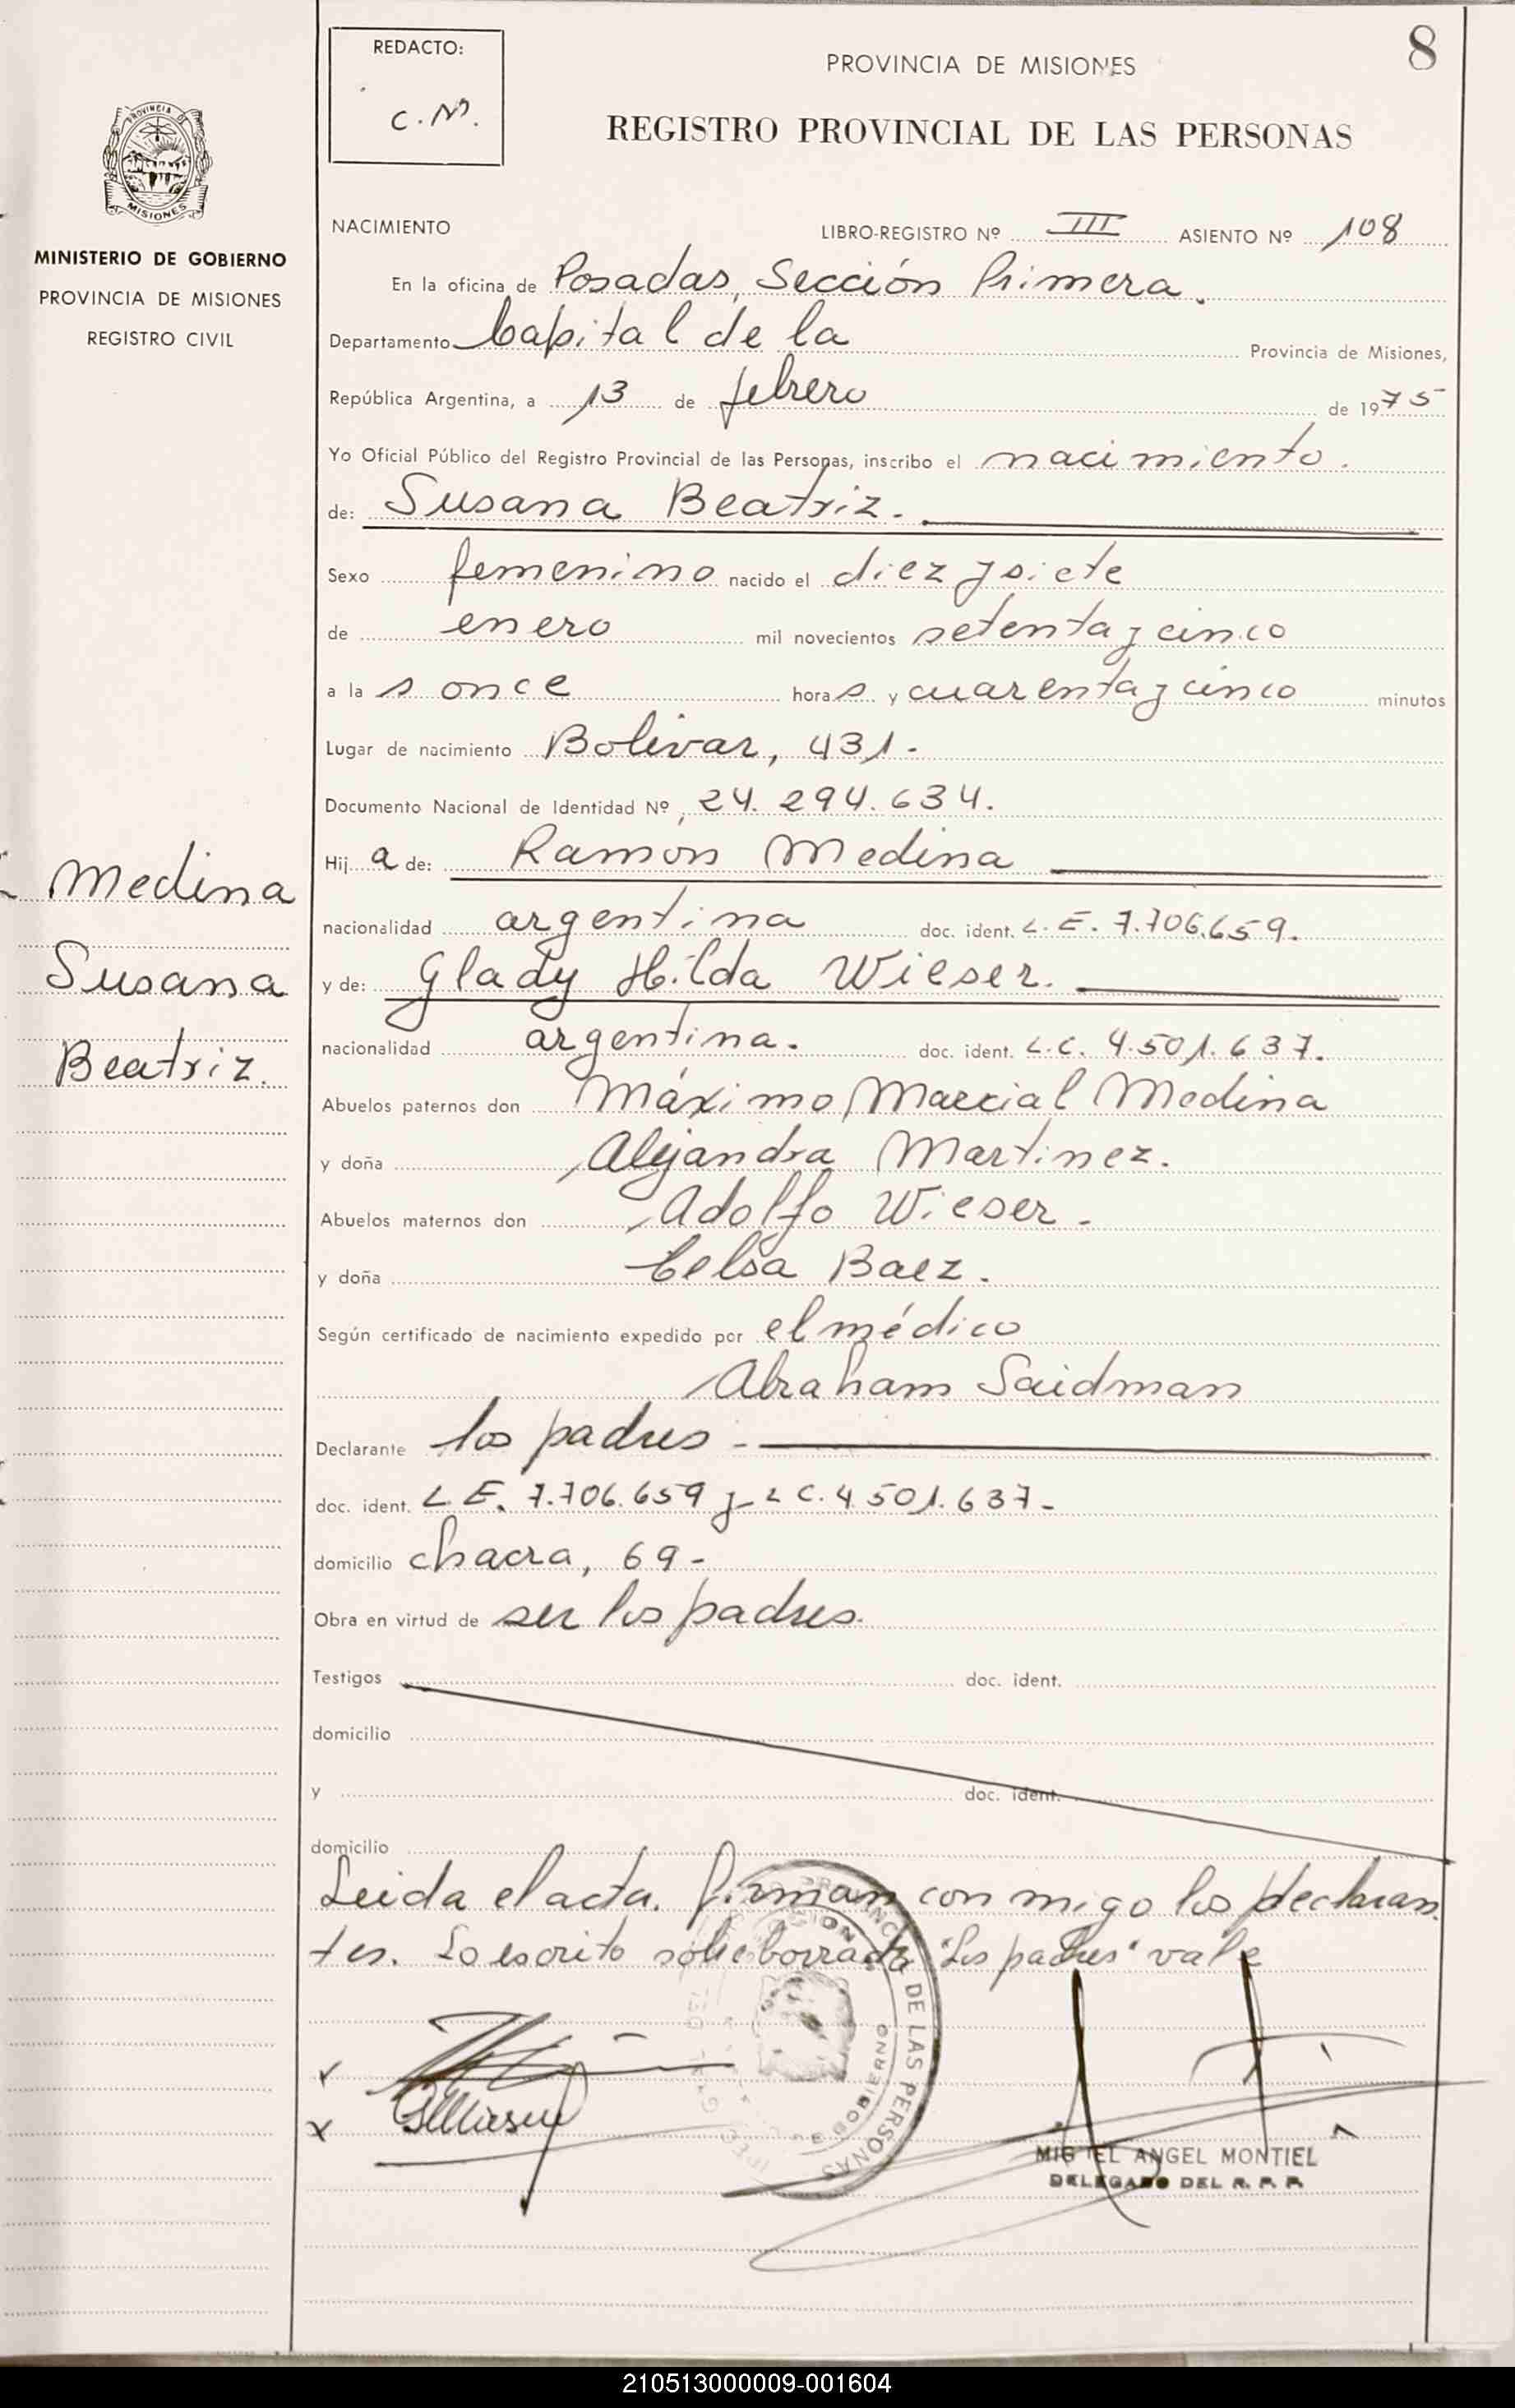 8
REDACTO:
C. M.
PROVINCIA DE MISIONES
REGISTRO PROVINCIAL DE LAS PERSONAS
PROVINCIA DE
MISIONES
MINISTERIO DE GOBIERNO
PROVINCIA DE MISIONES
REGISTRO CIVIL
NACIMIENTO LIBRO-REGISTRO Nº III ASIENTO Nº 108
En la oficina de Posadas, Sección Primera.
Departamento Capital de la Provincia de Misiones,
República Argentina, a 13 de febrero de 1975
Yo Oficial Público del Registro Provincial de las Personas, inscribo el nacimiento.
de: Susana Beatriz.
Sexo femenino nacido el diez y siete
de enero mil novecientos setenta y cinco
a la s once hora s y cuarenta y cinco minutos
Lugar de nacimiento Bolivar, 431.
Documento Nacional de Identidad Nº, 24.294.634.
Hij a de: Ramon Medina
nacionalidad argentina doc. ident. L.E. 7.706.659.
y de: Glady Hilda Wieser.
nacionalidad argentina. doc. ident. L.C. 4.501.637.
Abuelos paternos don Máximo Marcial Medina
y doña Alejandra Martinez.
Abuelos maternos don Adolfo Wieser.
y doña Celsa Baez.
Según certificado de nacimiento expedido por el médico
Abraham Saidman
Declarante los padres -
doc. ident. L.E. 7.706.659 y L C. 4.501.637-
domicilio chacra, 69-
Obra en virtud de ser los padres.
Testigos doc. ident.
domicilio
y doc. ident.
domicilio
Leida el acta. firman con migo los declaran
tes. Lo escrito sobre borrado "Los padres" vale
Medina
Susana
Beatriz.
DE LAS PERSONAS
GOBIERNO
MIGUEL ANGEL MONTIEL
DELEGADO DEL R. P. P.
210513000009-001604